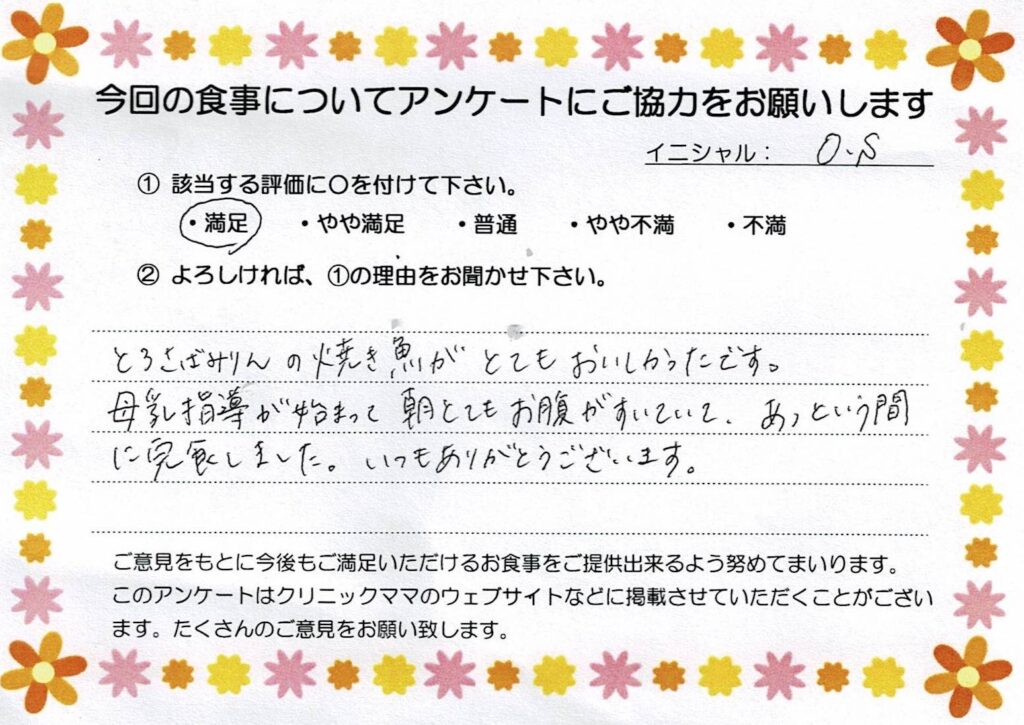 今回の食事についてアンケートにご協力をお願いします
イニシャル： O.S
① 該当する評価に〇を付けて下さい。
・満足 ・やや満足 ・普通 ・やや不満 ・不満
② よろしければ、①の理由をお聞かせ下さい。
とろさばみりんの焼き魚がとてもおいしかったです。
母乳指導が始まって朝とてもお腹がすいていて、あっという間
に完食しました。いつもありがとうございます。
ご意見をもとに今後もご満足いただけるお食事をご提供出来るよう努めてまいります。
このアンケートはクリニックママのウェブサイトなどに掲載させていただくことがござい
ます。たくさんのご意見をお願い致します。